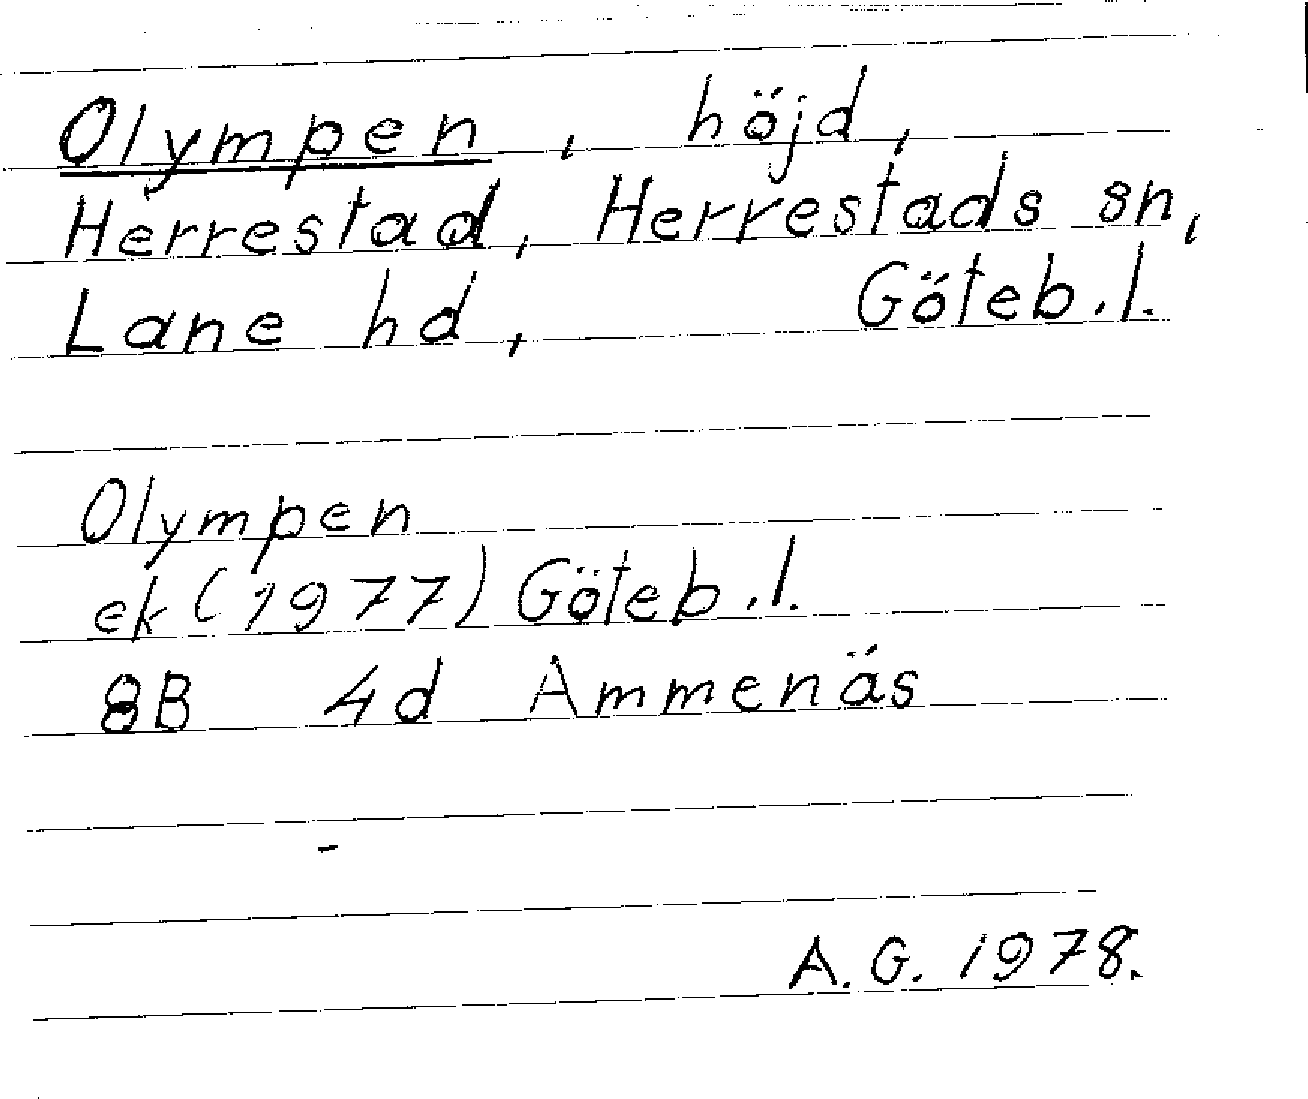 Olympen, höjd,
Herrestad, Herrestads sn,
Lane hd, Göteb.l.
Olympen
ek (1977) Göteb.l.
8B 4d Ammenäs
A.G. 1978.